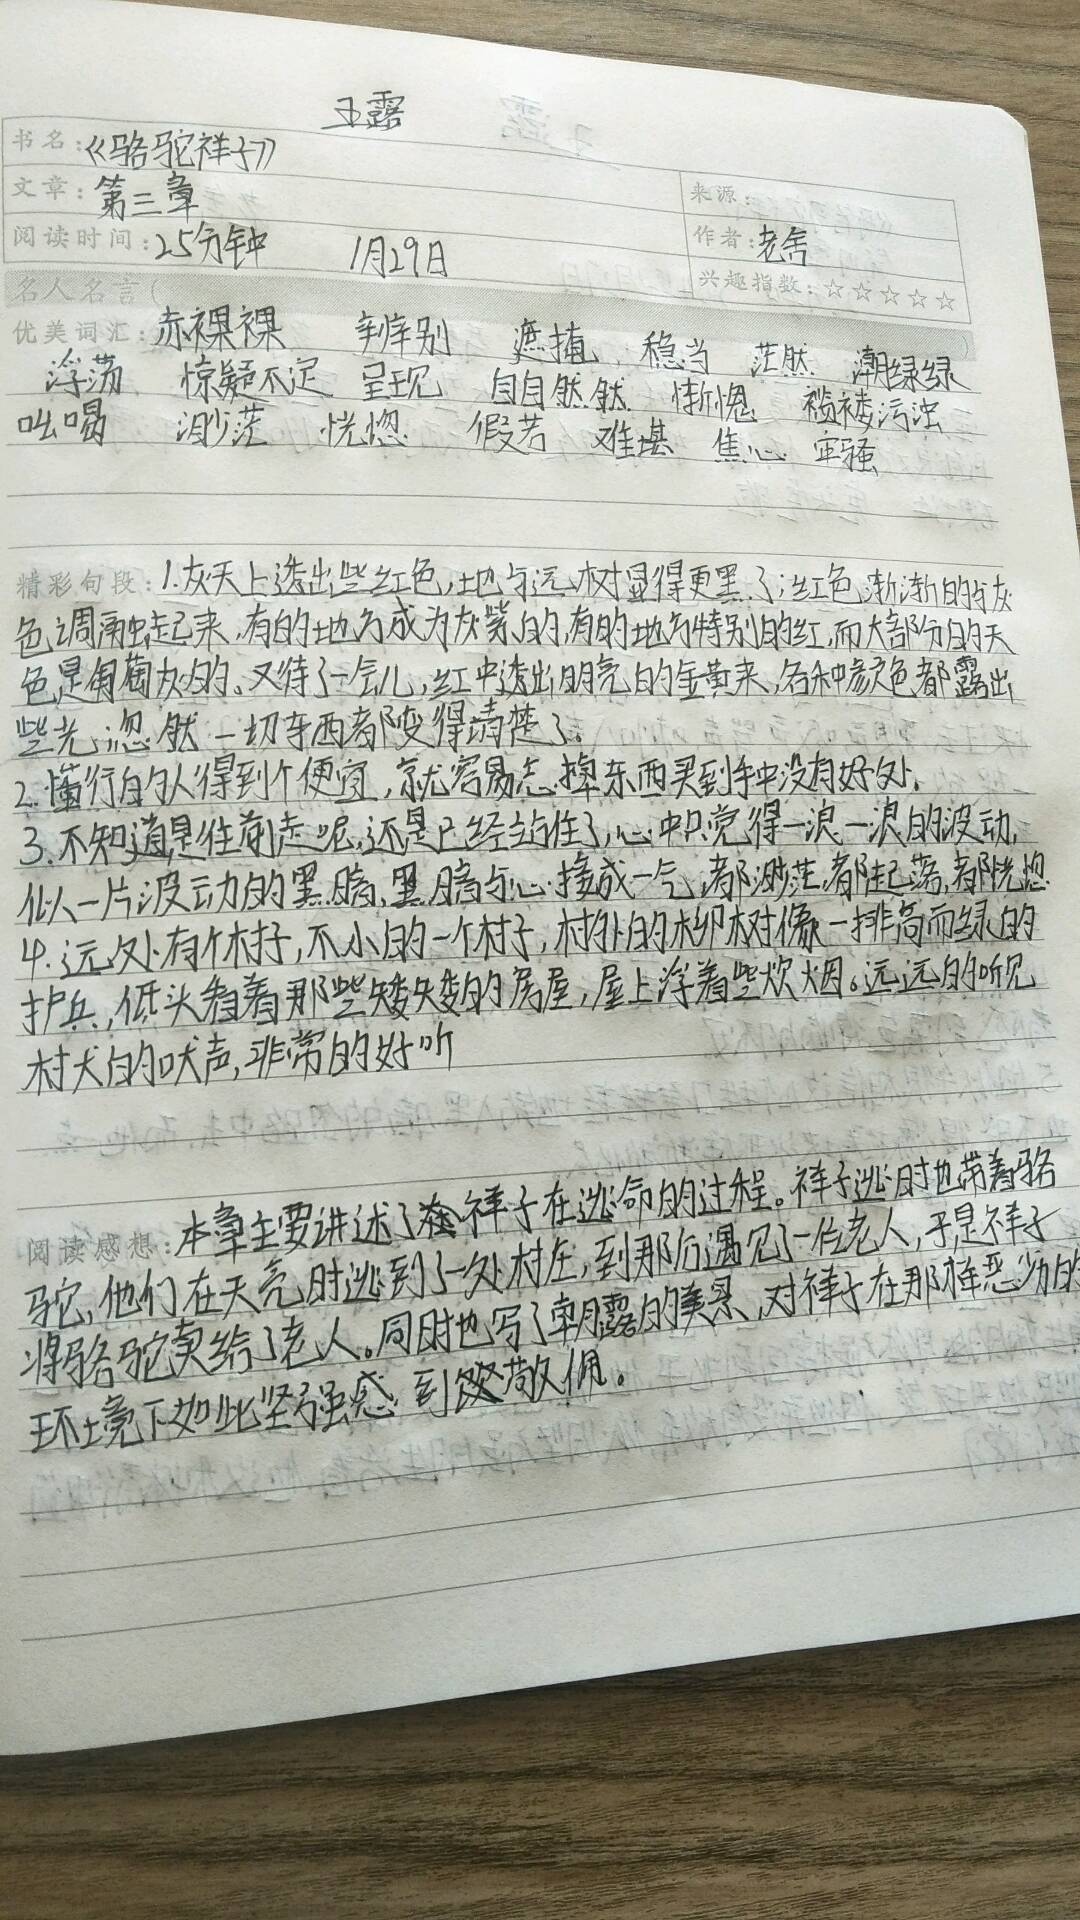 王露
书名:《骆驼祥子》
文章:第三章
来源:
阅读时间:25分钟 1月29日
作者:老舍
兴趣指数:☆☆☆☆☆
名人名言(                )
优美词汇:赤裸裸 辨别 遮掩 稳当 茫然 潮绿绿
浮荡 惊疑不定 呈现 自自然然 惭愧 褴褛污浊
吆喝 渺茫 恍惚 假若 难堪 焦心 牢骚
精彩句段:1.灰天上透出些红色,地与远树显得更黑了;红色渐渐的与灰
色调融起来,有的地方成为灰紫的,有的地方特别的红,而大部分的天
色是葡萄灰的。又待了一会儿,红中透出明亮的金黄来,各种颜色都露出
些光;忽然一切东西都变得清楚了。
2.懂行的人得到个便宜,就容易忘掉东西买到手中没有好处.
3.不知道是往前走呢,还是已经站住了,心中只觉得一浪一浪的波动,
似一片波动的黑暗,黑暗与心接成一气,都渺茫,都起落,都恍惚
4.远处有个村子,不小的一个村子,村外的柳树像一排高而绿的
护兵,低头看着那些矮矮的房屋,屋上浮着些炊烟。远远的听见
村犬的吠声,非常的好听
阅读感想:本章主要讲述了祥子在逃命的过程。祥子逃时也带着骆
驼,他们在天亮时逃到了一处村庄,到那后遇见了一位老人,于是祥子
将骆驼卖给了老人。同时也写了朝露的美景,对祥子在那样恶劣的
环境下如此坚强感到敬佩。